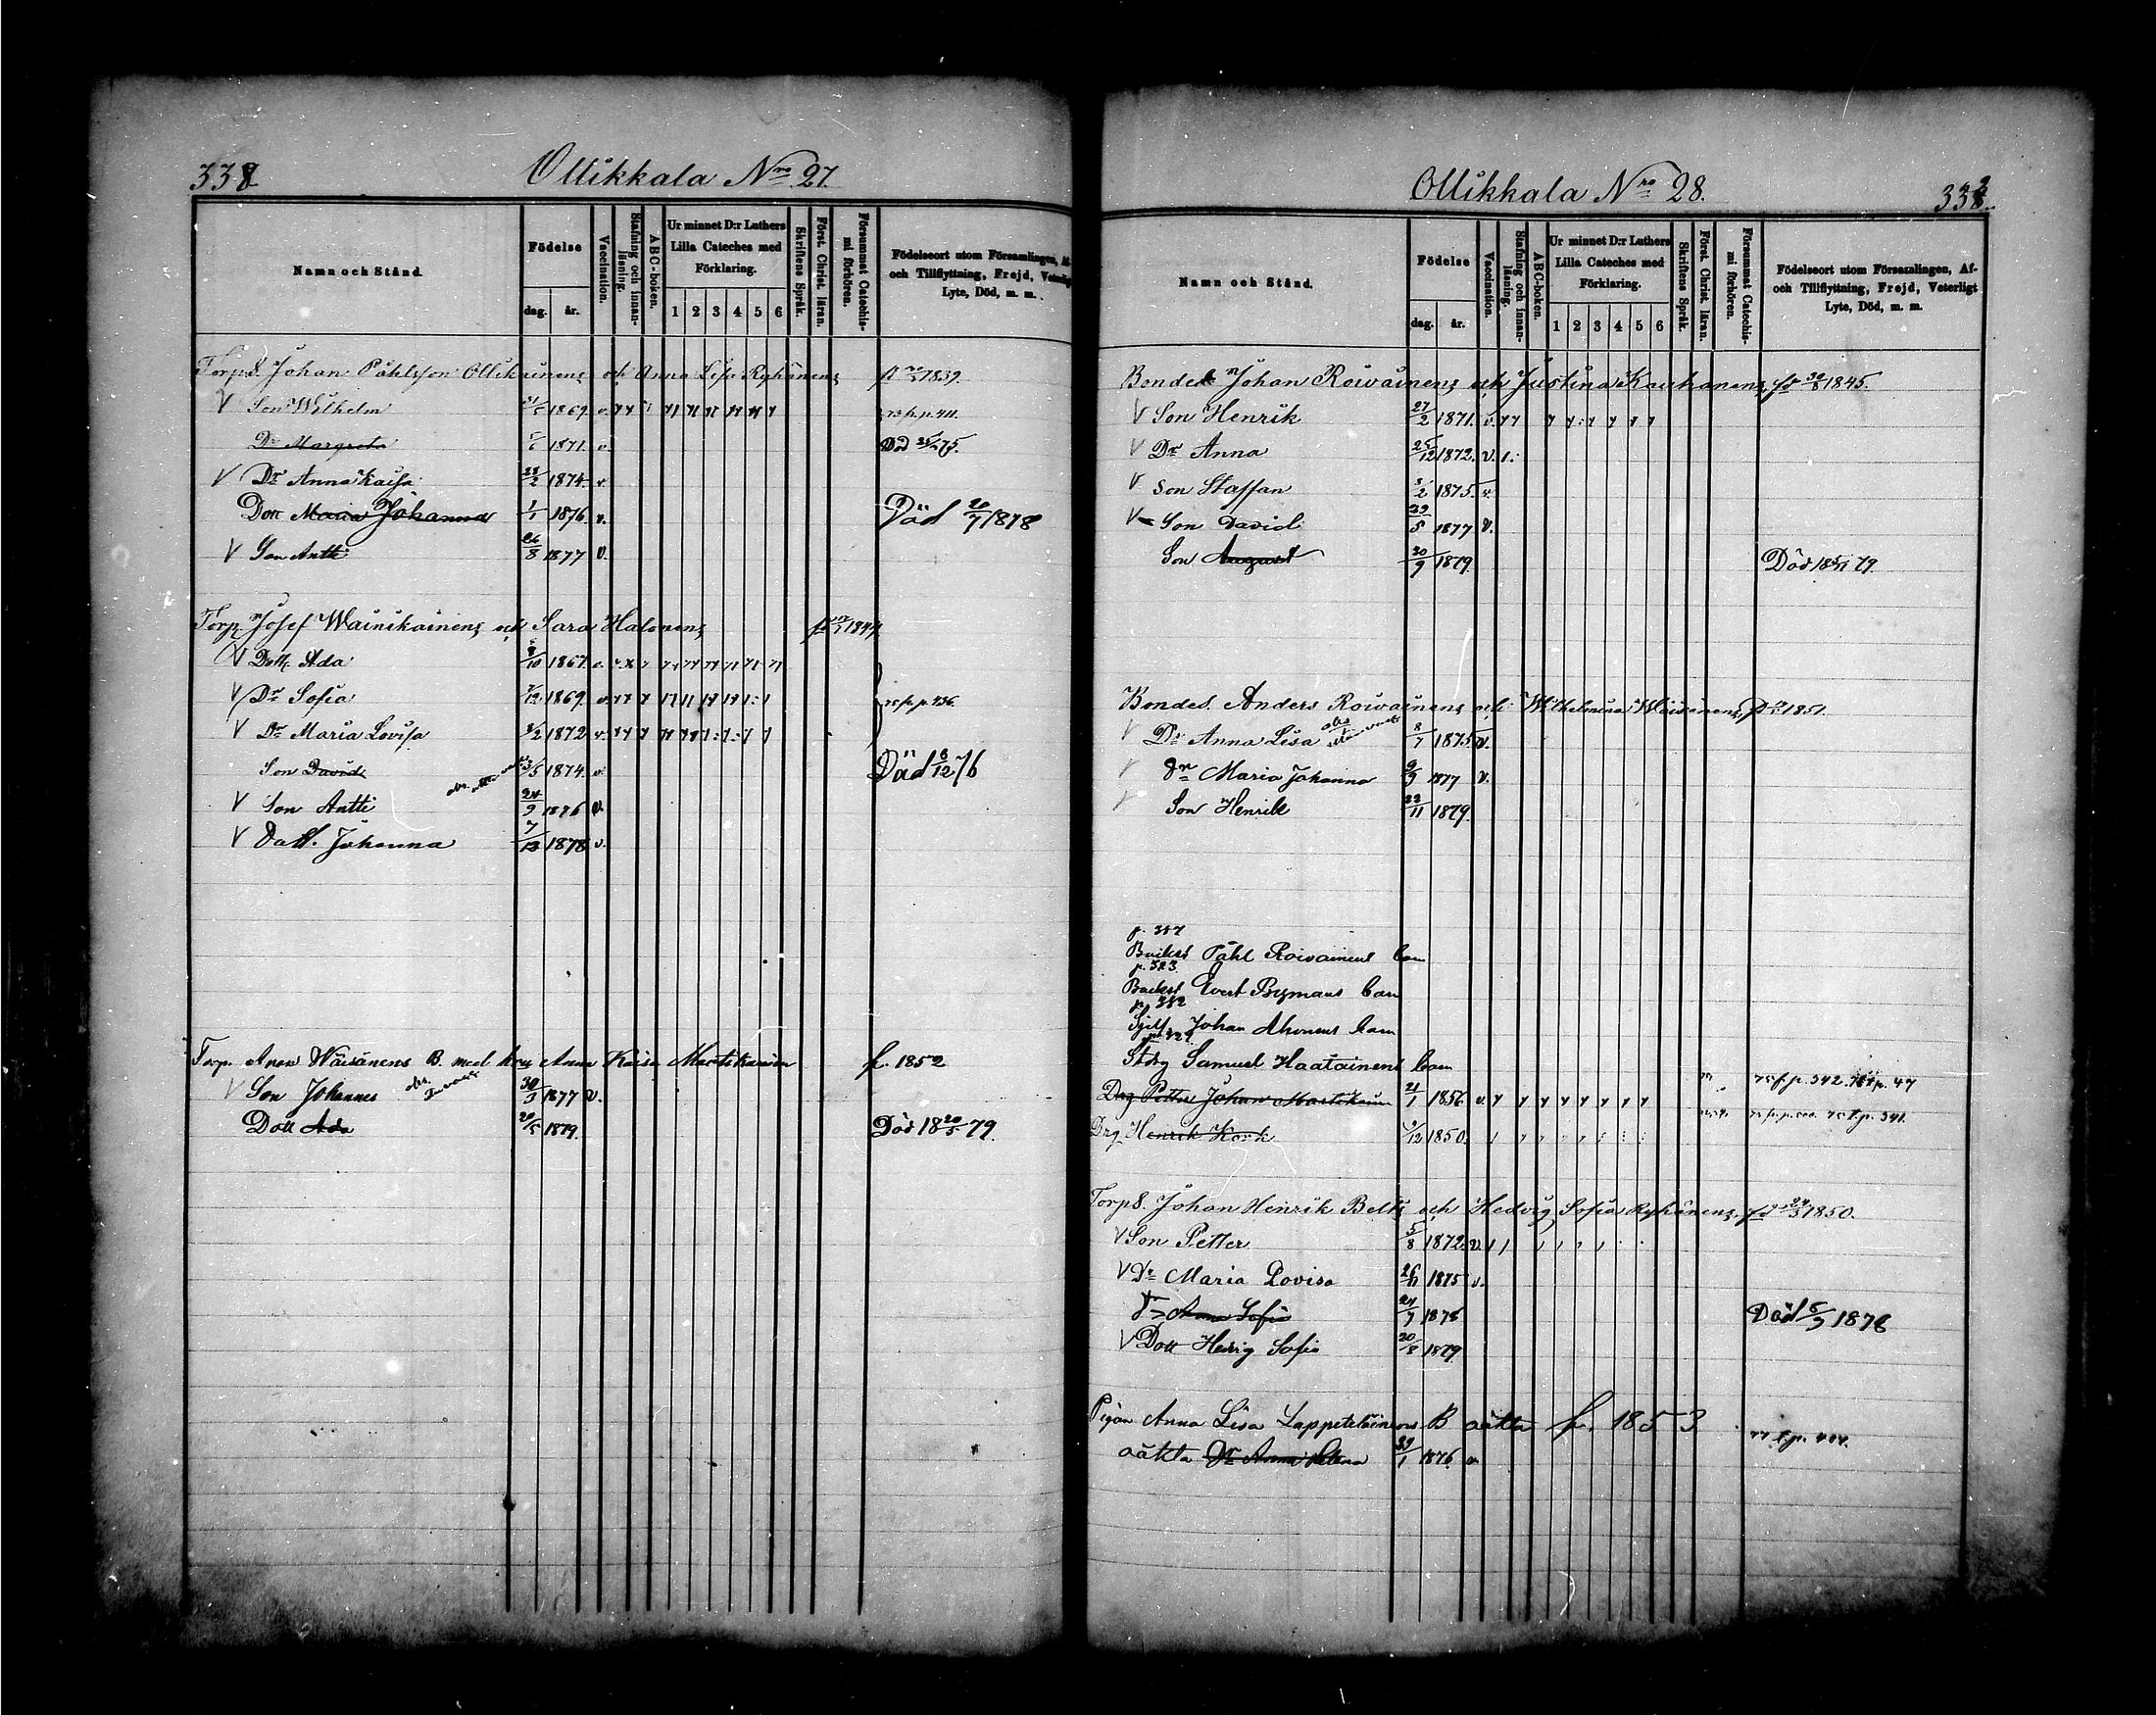 338
Ollikkala Nro 27.
Namn och Stånd.
Födelse
dag. år.
Vaccination.
Stafning och innan-läsning.
ABC-boken.
Ur minnet D:r Luthers Lilla Cateches med Förklaring.
1 2 3 4 5 6
Skriftens Språk.
Först. Christ. läran.
Försummat Catechis-mi förhören.
Födelseort utom Församlingen, Af- och Tillflyttning, Frejd, Veterligt Lyte, Död, m. m.
Torps. Johan Påhlsson Ollikainens och Anna Lisa Ryhänens 1839.
V Son Wilhelm 1869. v.
Dr Margreta 1871. v. Död 75.
V Dr Anna Kaisa 23/2 1874. v.
Dott Maria Johanna 1/1 1876 v. Död 20/7 1878
V Son Antti 26/8 1877 v.
Torp Josef Wainikainens och Sara Halonens 1844
V Dott. Ada 8/10 1867. v.
V Dr Sofia 7/12 1869. v. p. 436.
V Dr Maria Lovisa 3/2 1872 v.
Son David 3/5 1874. v. Död 6/12 76
V Son Antti 24/9 1876 v.
V Dott. Johanna 7/12 1878 v.
Torp. Anders Wäisänens B. med hu Anna Kaisa Martikainen f. 1852
V Son Johannes 30/3 1877 v.
Dott Ada 20/5 1879. Död 18 20/5 79.
Ollikkala Nro 28.
339
Namn och Stånd.
Födelse
dag. år.
Vaccination.
Stafning och innan-läsning.
ABC-boken.
Ur minnet D:r Luthers Lilla Cateches med Förklaring.
1 2 3 4 5 6
Skriftens Språk.
Först. Christ. läran.
Försummat Catechis-mi förhören.
Födelseort utom Församlingen, Af- och Tillflyttning, Frejd, Veterligt Lyte, Död, m. m.
Bonden Johan Roivainens och Justina Kauhanens, fö 30/8 1845.
V Son Henrik 27/2 1871. v.
V Dr Anna 25/12 1872. v.
V Son Staffan 3/2 1875. v.
V Son David 29/5 1877 v.
Son August 20/9 1879. Död 18 79.
Bondes. Anders Roivainens och Wilhelmina Wäisänens, 1851.
V Dr Anna Lisa 8/7 1875 v.
V Dr Maria Johanna 9/9 1877 v.
V Son Henrik 22/11 1879.
p. 317
Backst Påhl Roivainens barn
p. 323
Backst Evert Bymans barn
p. 312
Sjelf. Johan Ahonens barn
Stdrg Samuel Haatainens barn
Drg Petter Johan Martikain 21/1 1856 v. 75 f. p. 342. p. 47
Drg Henrik Kork 9/12 1850. p. 341.
Torps. Johan Henrik Belts och Hedvig Sofia Ryhänens, fö 24/3 1850.
V Son Petter 5/8 1872. v.
V Dr Maria Lovisa 26/11 1875 v.
Dr Anna Sofia 24/7 1878 Död 5/9 1878
V Dott Hedvig Sofia 20/8 1879
Pigan Anna Lisa Lappeteläinens B oäkta f. 1853
oäkta Dr Anna Helena 29/1 1876 v. 77 t. p. 404.